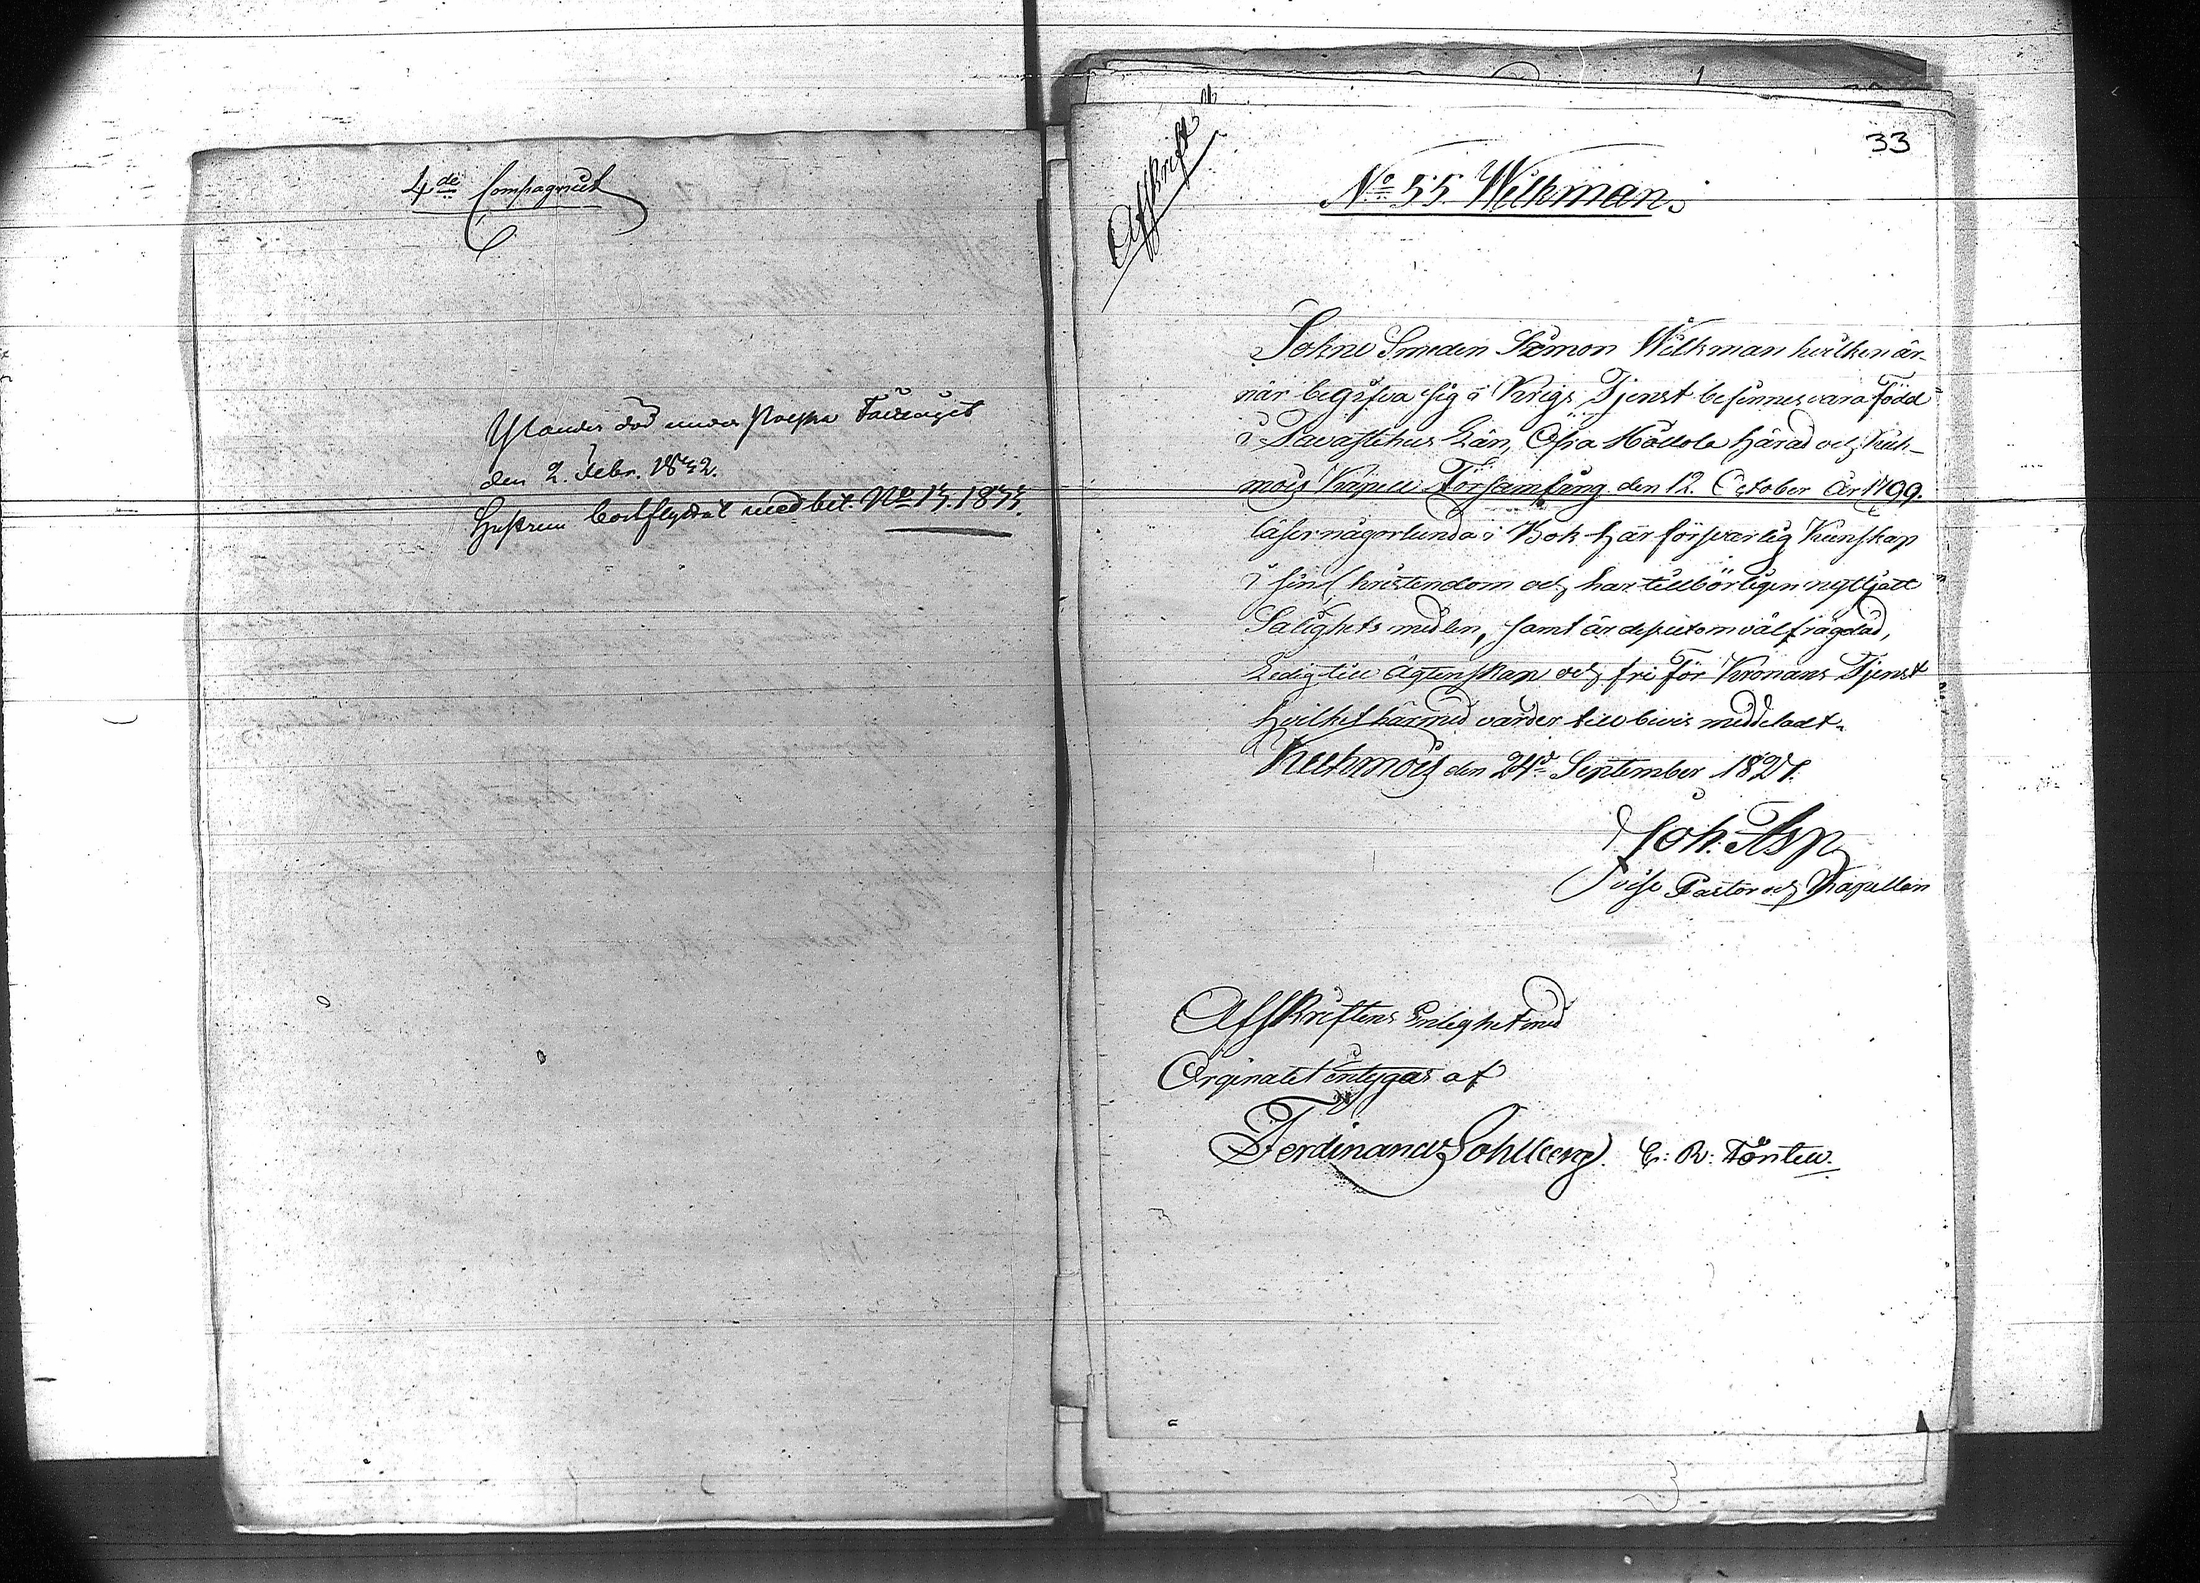 4de Compagniet
Ylander död under Polska Fälttåget
den 2. Febr. 1832.
Hustrun bortflyttat med bet. No 15. 1833.
33
Afskrift
No 55 Wilkman.
Sokne Smeden Simon Wilkman hvilken är
när begifva sig i Krigs Tjenst befinnes vara Född
i Tavastehus Län, Öfra Hollola härad och Kuh-
mois Kapell Församling den 12. October år 1799.
läser någorlunda i Bok har försvarlig Kunskap
i sin Christendom och har tillbörligen nyttjatt
Salighets medlen, samt är dessutom välfrägdad,
Ledig till Ägtenskap och fri för Kronans Tjenst
hvilket härmed varder till bevis meddeladt.
Kuhmois den 24de September 1827.
Joh. Asp
vise Pastor och Kapellan
Afskriftens Enlighet med
Orginalet intygar af
Ferdinand Sohlberg. C: R: